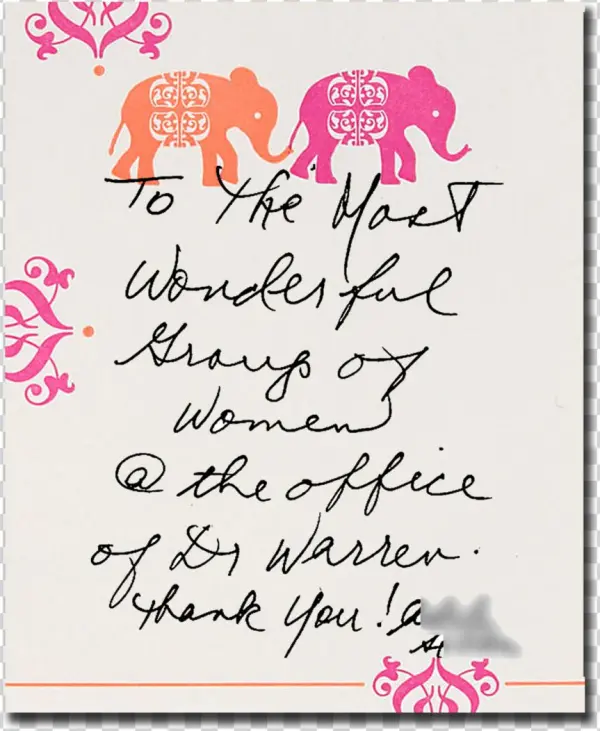 To The Most
Wonderful
Group of
Women
@ the office
of Dr Warren.
Thank You!